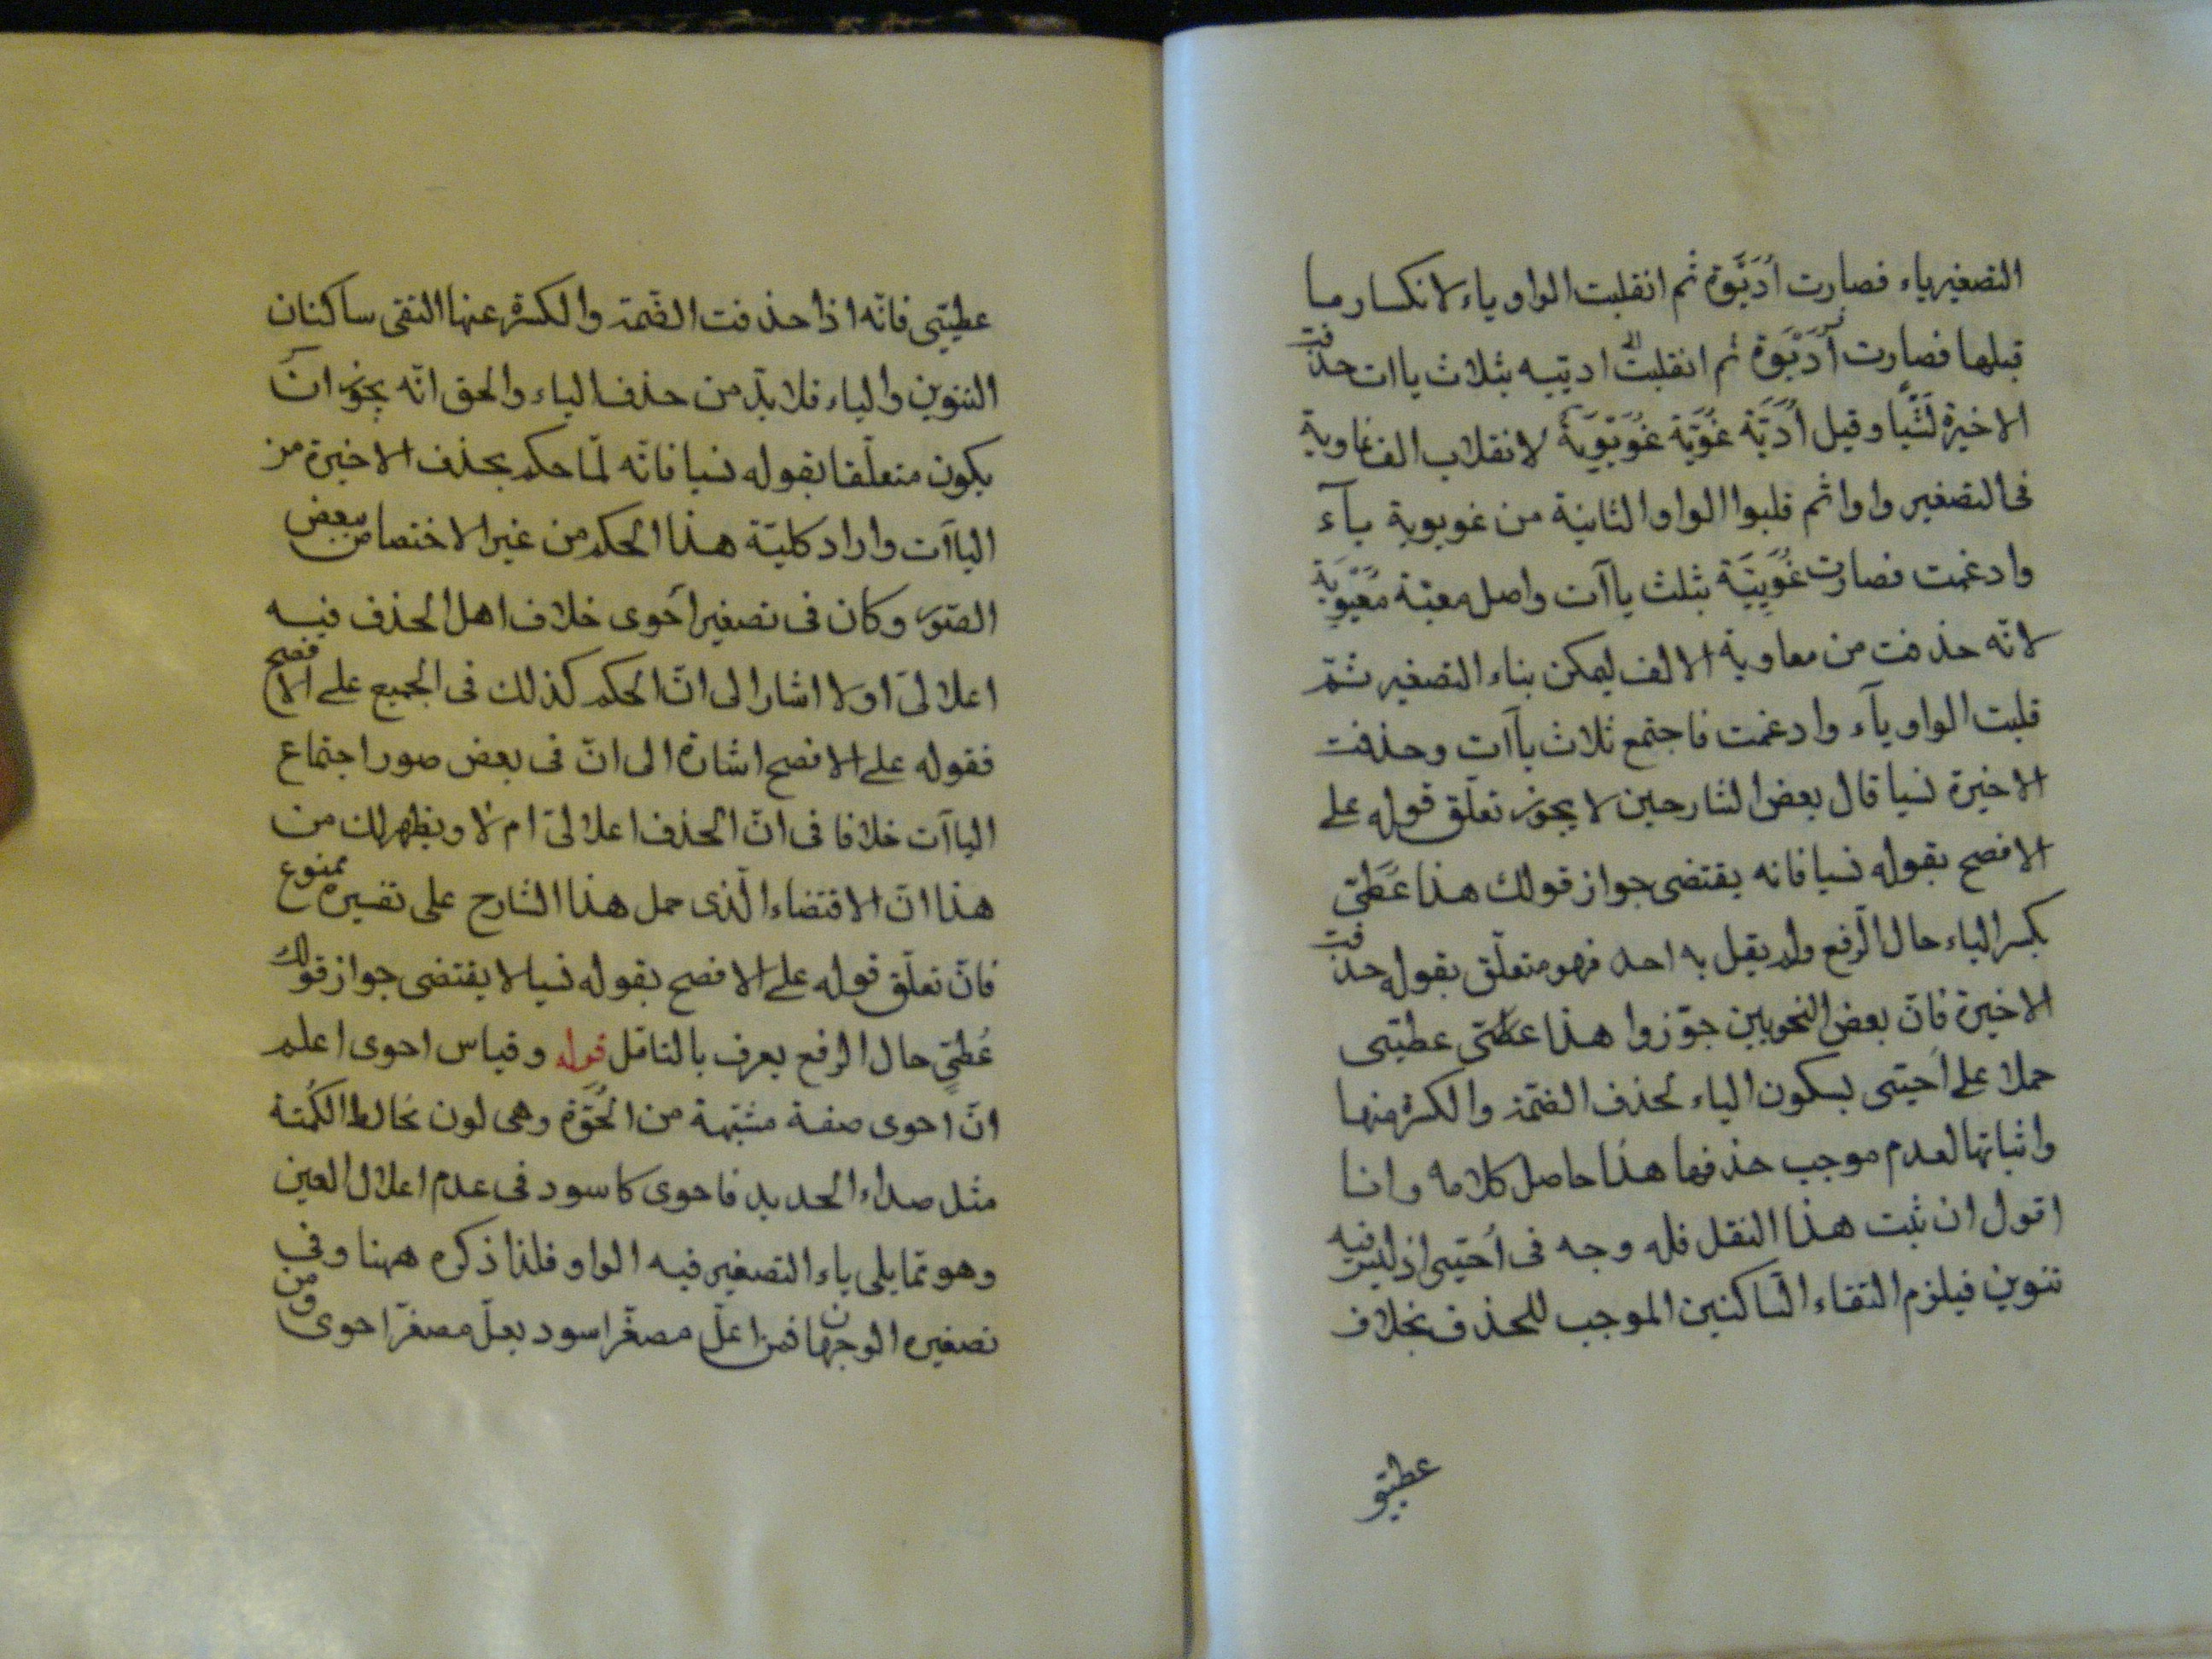 التصغير ياء فصارت اُدَيِّوَة ثم انقلبت الواو ياء لانكسار ما
قبلها فصارت اُدَيِّوَة ثم انقلبت الى اديّيه بثلاث ياات حذفت
الاخيرة نسيا وقيل اُدَيَّة غُوَيَّة غُوَيْوِيَة لانقلاب الف غاوية
فى التصغير واوا ثم قلبوا الواو الثانية من غويوية يآء
وادغمت فصارت غُوَيِّيَة بثلث ياآت واصل معيّة مُعَيْوِيَة
لانّه حذفت من معاوية الالف ليمكن بناء التصغير ثمّ
قلبت الواو يآء وادغمت فاجتمع ثلاث ياآت وحذفت
الاخيرة نسيا قال بعض الشارحين لا يجوز تعلّق قوله على
الافصح بقوله نسيا فانه يقتضى جواز قولك هذا عُطَيِّ
بكسر الياء حال الرّفع ولم يقل به احد فهو متعلّق بقوله حذفت
الاخيرة فانّ بعض النحويين جوّزوا هذا عطيّى عطيّيى
حملا على اُحيّيى بسكون الياء لحذف الضمّة والكسرة منها
واثباتها لعدم موجب حذفها هذا حاصل كلامه وانا
اقول ان ثبت هذا النقل فله وجه فى اُحيّيى اذ ليس فيه
تنوين فيلزم التقاء السّاكنين الموجب للحذف بخلاف
عطيّيى
عطيّيى فانّه اذا حذفت الضّمة والكسرة عنها التقى ساكنان
التنوين والياء فلا بدّ من حذف الياء والحق انّه يجوز ان
يكون متعلّقا بقوله نسيا فانّه لمّا حكم بحذف الاخيرة من
الياآت واراد كليّة هذا الحكم من غير الاختصاص ببعض
الصّور وكان فى تصغير اَحوى خلاف اهل الحذف فيه
اعلالىّ او لا اشار الى انّ الحكم كذلك فى الجميع على الافصح
فقوله على الافصح اشارة الى انّ فى بعض صور اجتماع
الياآت خلافا فى انّ الحذف اعلالىّ ام لا ويظهر لك من
هذا انّ الاقتضاء الّذى حمل هذا الشّارح على تفسيره ممنوع
فانّ تعلّق قوله على الافصح بقوله نسيا لا يقتضى جواز قولك
عُطَيٍّ حال الرفع يعرف بالتامّل قوله وقياس احوى اعلم
انّ احوى صفة مشبّهة من الحُوَّة وهى لون يخالط الكُمتة
مثل صداء الحديد فاحوى كاسود فى عدم اعلال العين
وهو ممّا يلى ياء التصغير فيه الواو فلذا ذكره ههنا وفى
تصغيره الوجهان فمن اعلّ مصغّر اسود يعلّ مصغّر احوى ومن